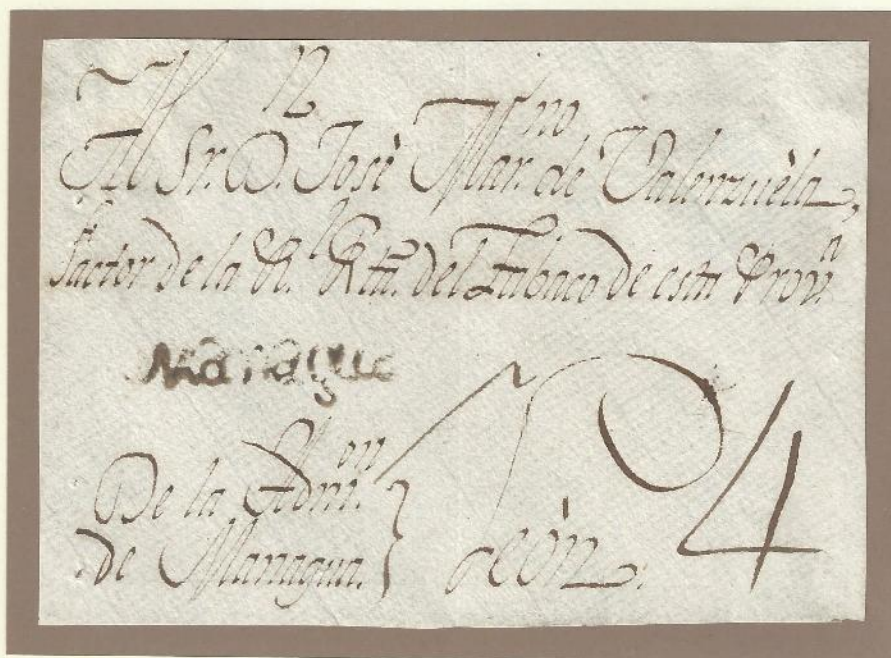 Al Sr. Dn. José Marno. de Valenzuèla,
factor de la Rl. Rta. del Tabaco de esta Provn.
Managua
De la Admon.
de Managua.
León.
4